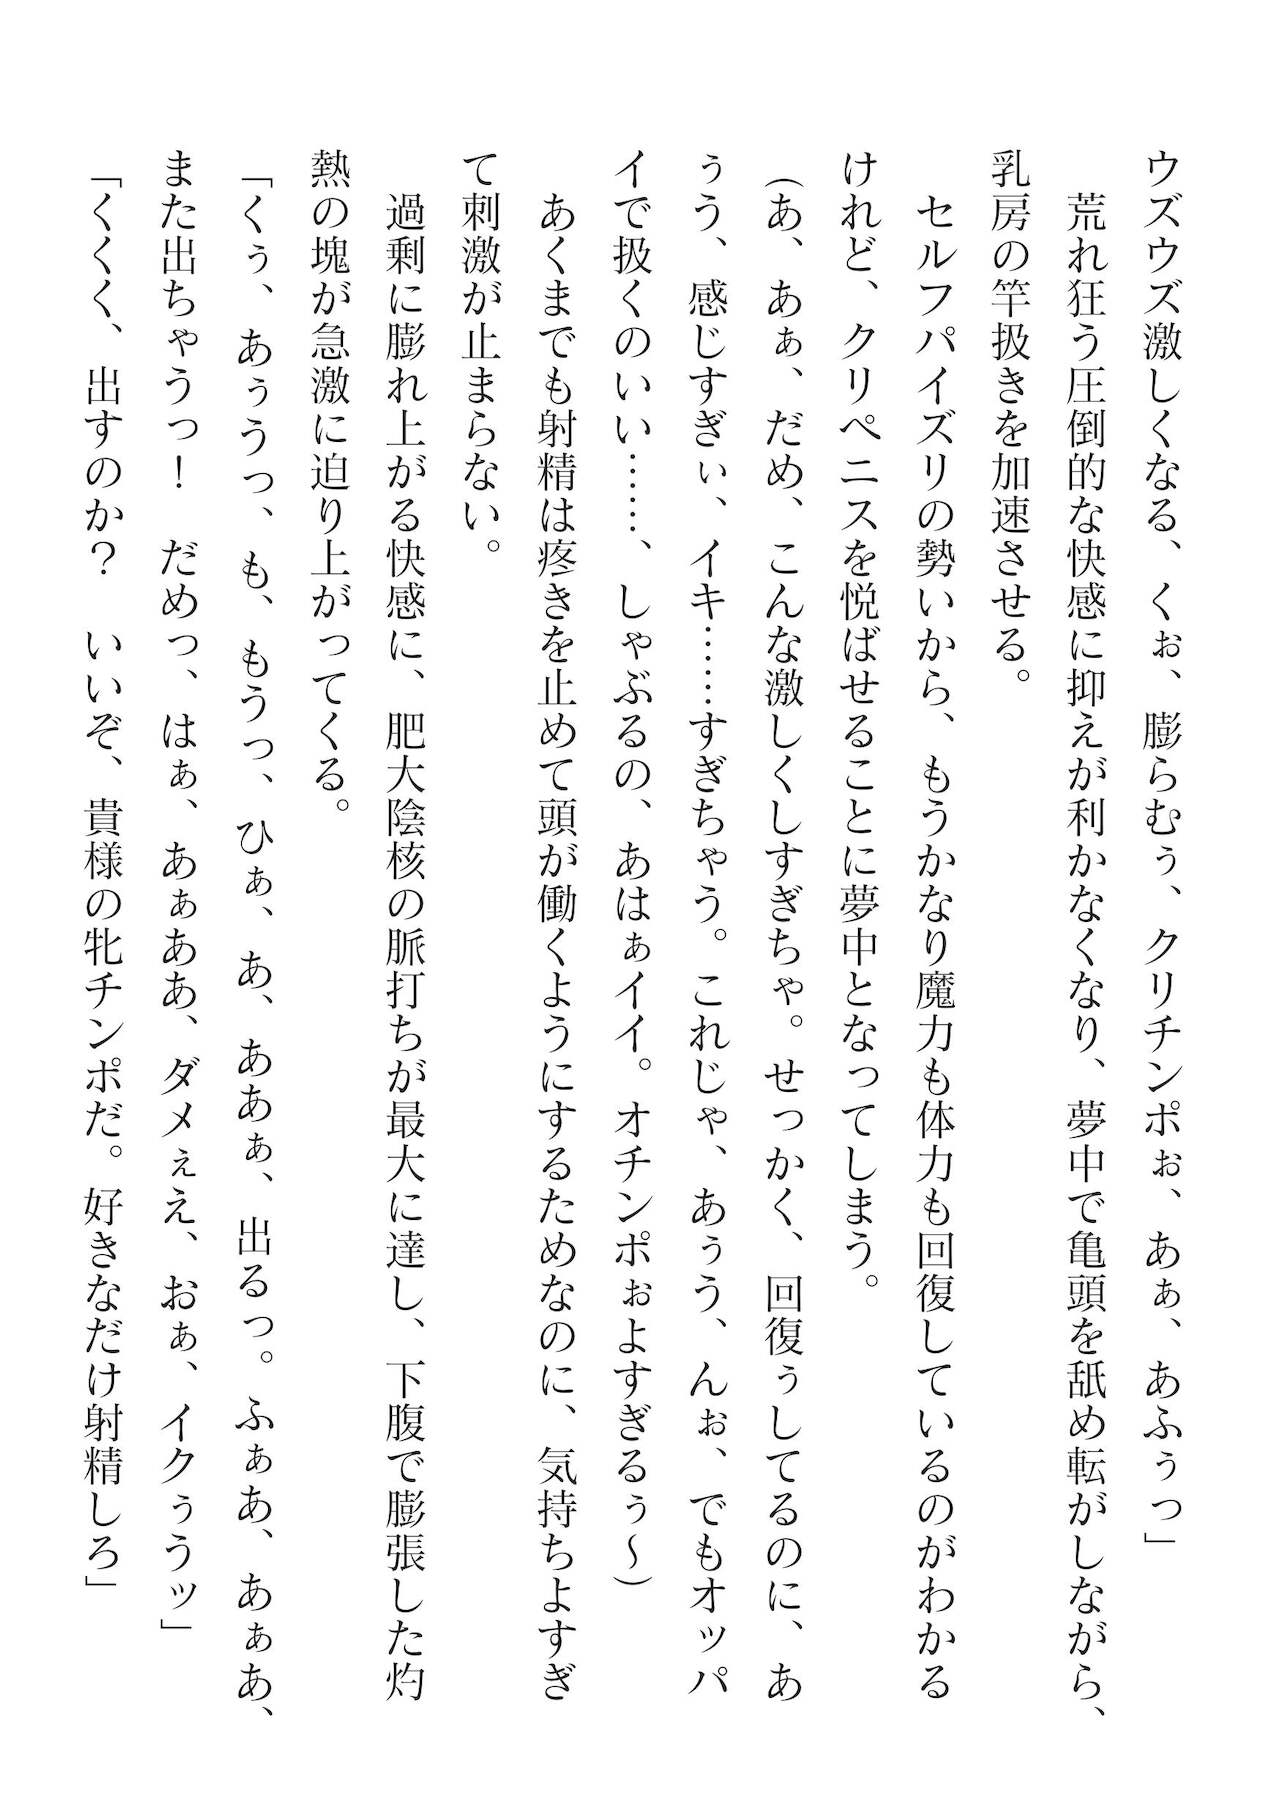 ウズウズ激しくなる、くぉ、膨らむぅ、クリチンポぉ、あぁ、あふぅっ」
　荒れ狂う圧倒的な快感に抑えが利かなくなり、夢中で亀頭を舐め転がしながら、
乳房の竿扱きを加速させる。
　セルフパイズリの勢いから、もうかなり魔力も体力も回復しているのがわかる
けれど、クリペニスを悦ばせることに夢中となってしまう。
（あ、あぁ、だめ、こんな激しくしすぎちゃ。せっかく、回復ぅしてるのに、あ
ぅう、感じすぎぃ、イキ……すぎちゃう。これじゃ、あぅう、んぉ、でもオッパ
イで扱くのいい……、しゃぶるの、あはぁイイ。オチンポぉよすぎるぅ～）
　あくまでも射精は疼きを止めて頭が働くようにするためなのに、気持ちよすぎ
て刺激が止まらない。
　過剰に膨れ上がる快感に、肥大陰核の脈打ちが最大に達し、下腹で膨張した灼
熱の塊が急激に迫り上がってくる。
「くぅ、あぅうっ、も、もうっ、ひぁ、あ、ああぁ、出るっ。ふぁあ、あぁあ、
また出ちゃうっ！　だめっ、はぁ、あぁああ、ダメぇえ、おぁ、イクぅうッ」
「くくく、出すのか？　いいぞ、貴様の牝チンポだ。好きなだけ射精しろ」